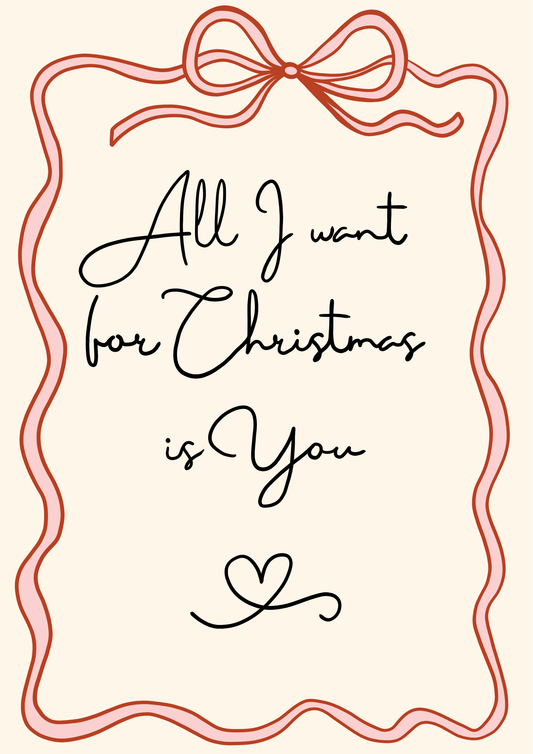 All I want
for Christmas
is You